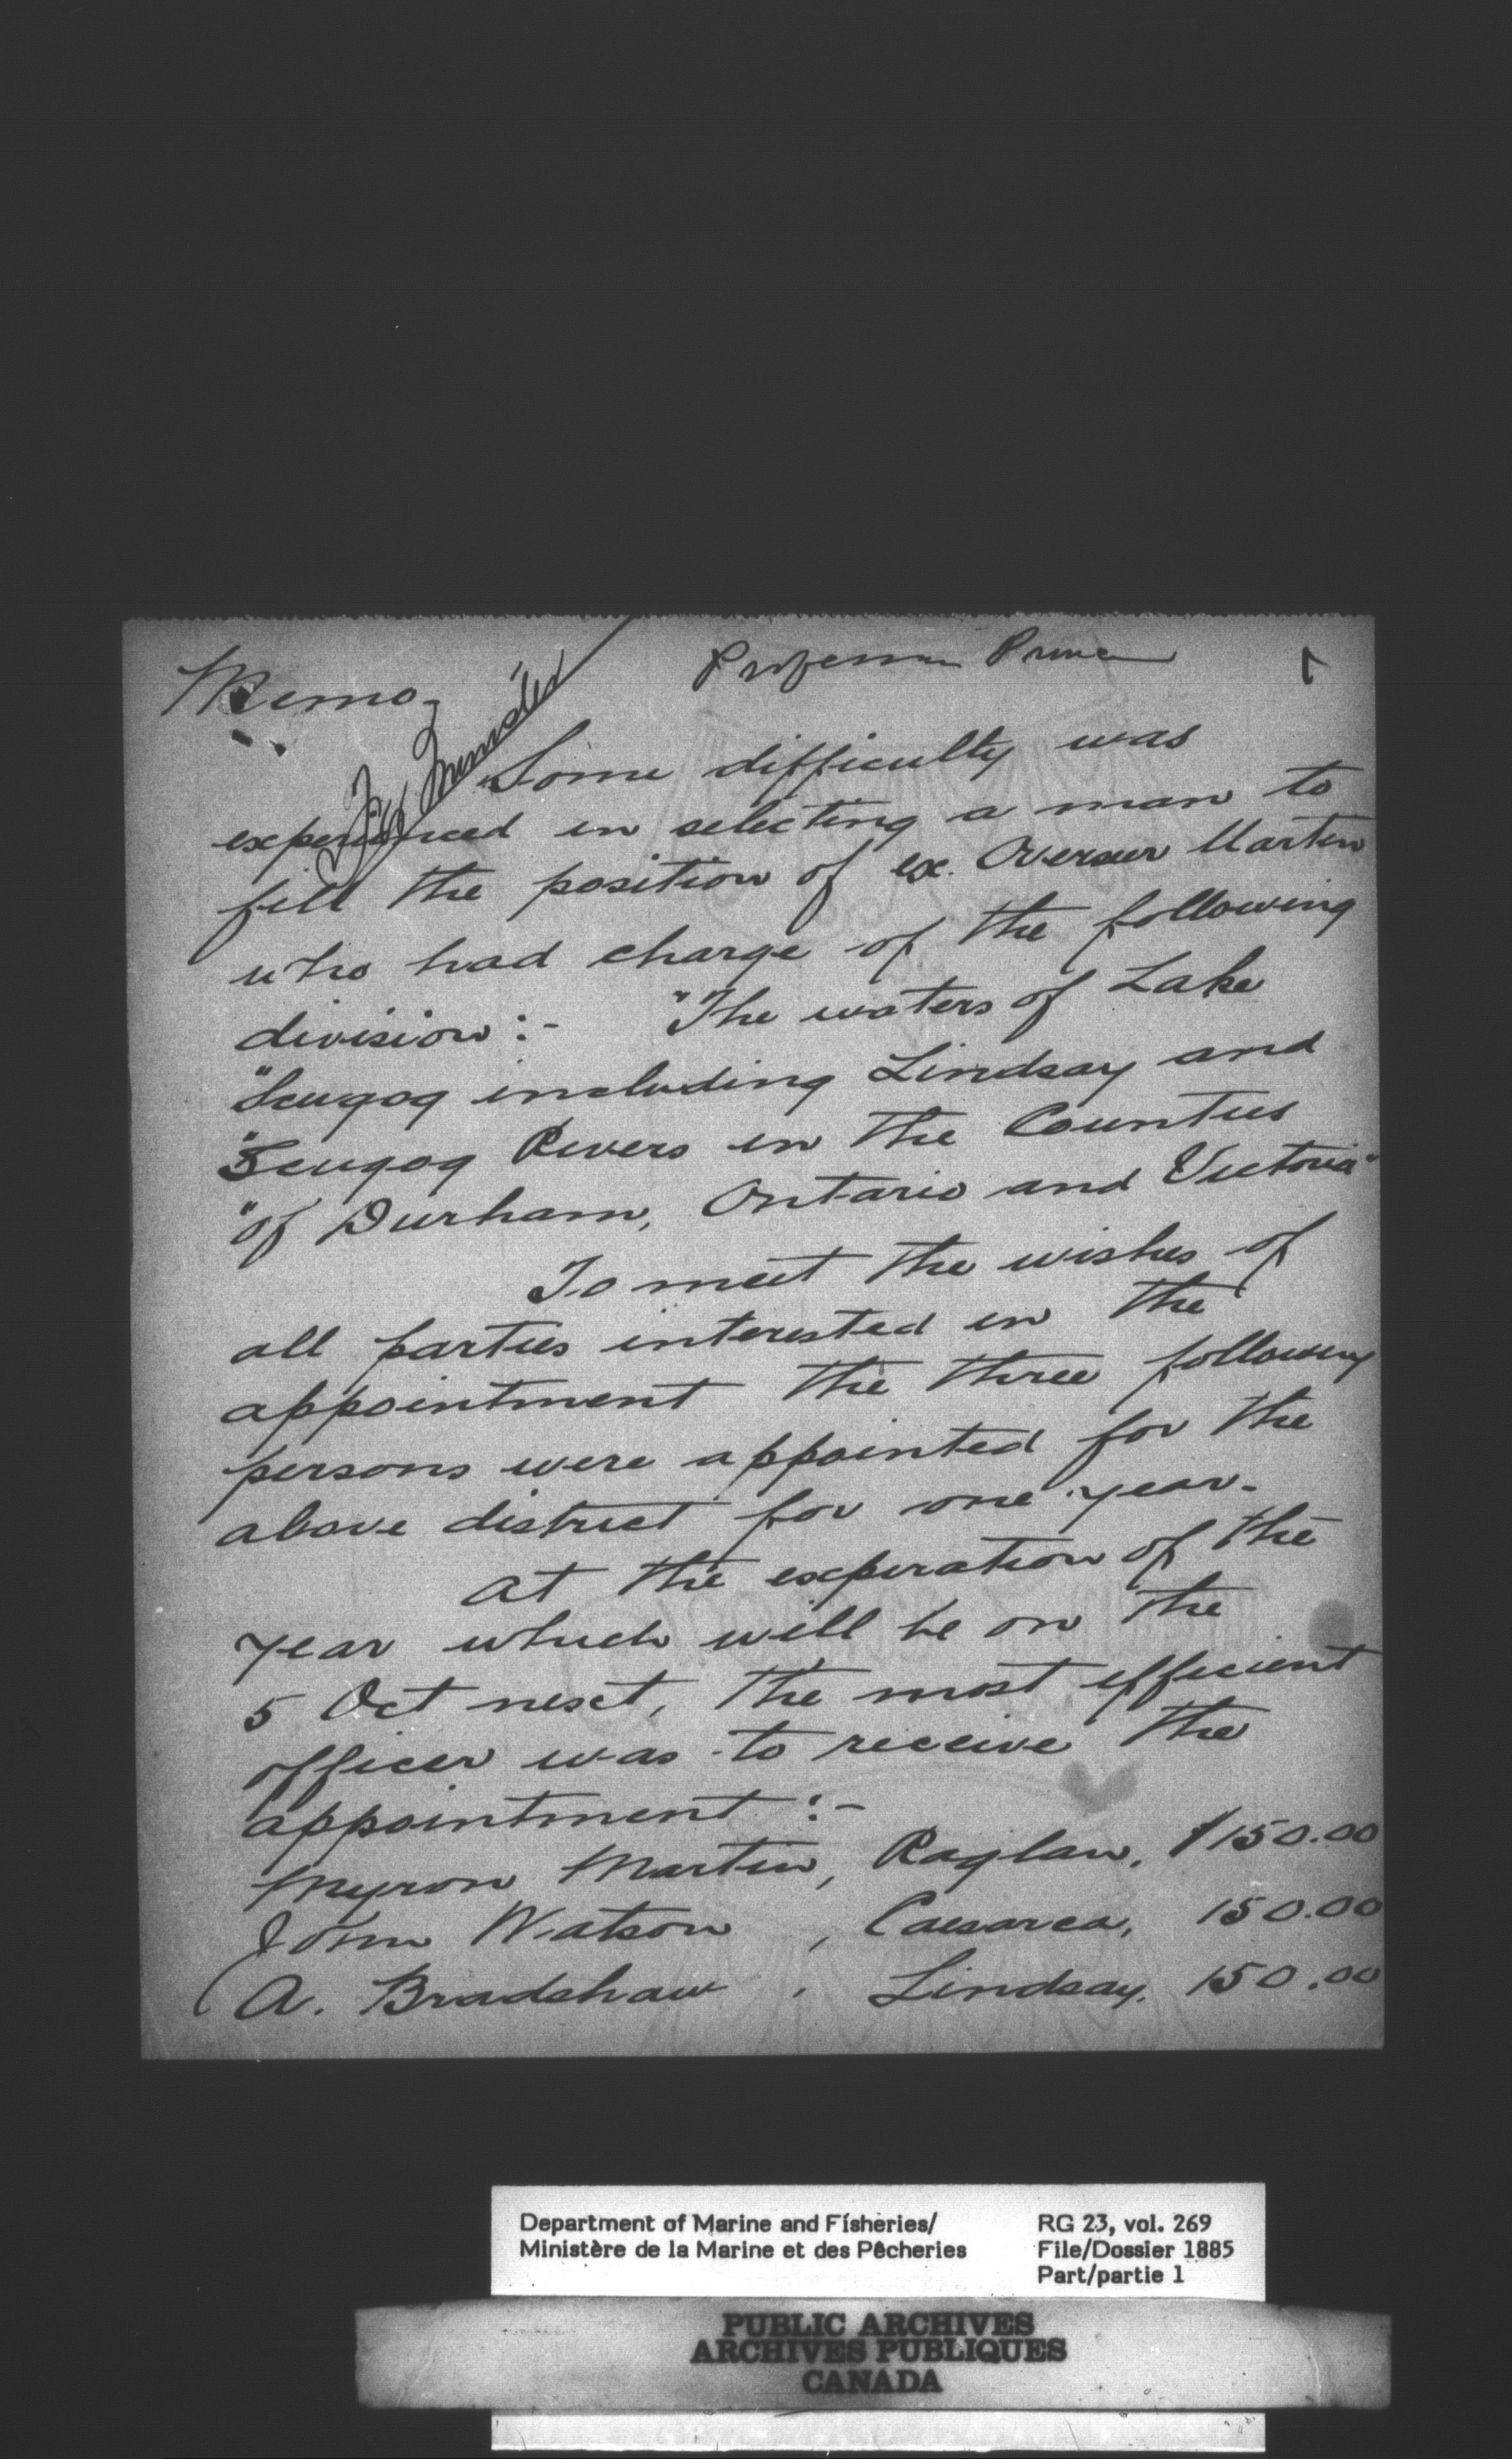 Memo-
Professor Prince
7
For Minister
Some difficulty was
experienced in selecting a man to
fill the position of ex. Overseer Martin
who had charge of the following
division :- "The waters of Lake
"Scugog including Lindsay and
"Scugog Rivers in the Counties
"of Durham, Ontario and Victoria"
To meet the wishes of
all parties interested in the
appointment the three following
persons were appointed for the
above district for one year.
At the expiration of the
year which will be on the
5 Oct next, the most efficient
officer was to receive the
appointment :-
Myron Martin, Raglan, $150.00
John Watson , Caesarea, 150.00
A. Bradshaw , Lindsay. 150.00
Department of Marine and Fisheries/
Ministère de la Marine et des Pêcheries
RG 23, vol. 269
File/Dossier 1885
Part/partie 1
PUBLIC ARCHIVES
ARCHIVES PUBLIQUES
CANADA